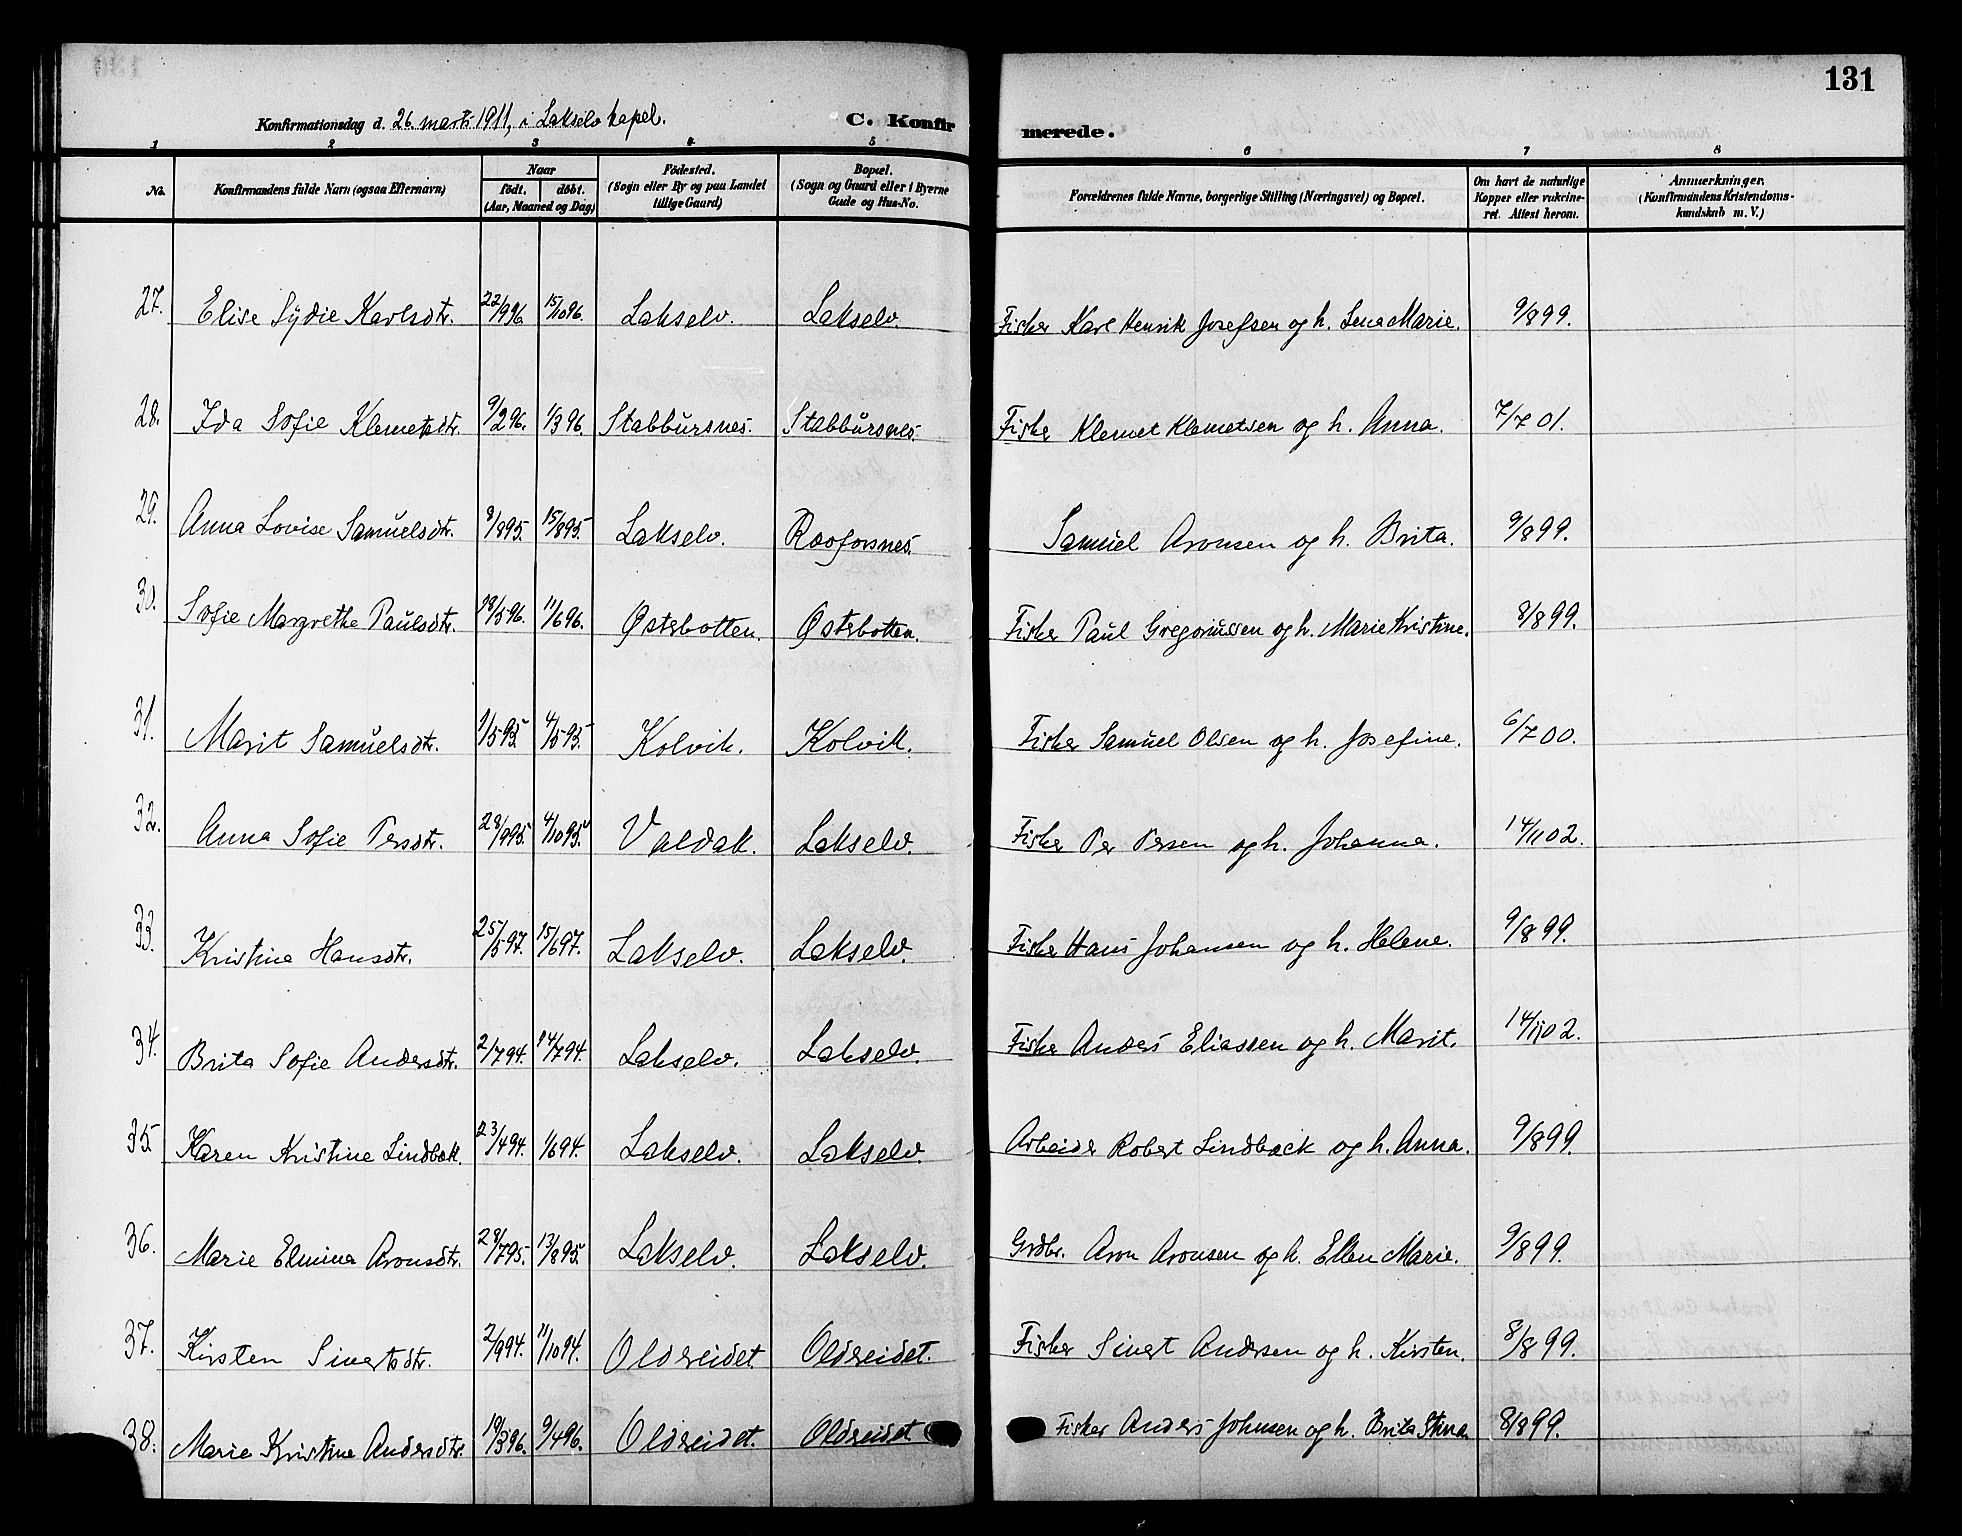 131
Konfirmationsdag d. 26. marts 1911, i Lakselv kapel. C. Konfirmerede.
1 2 3 4 5 6 7 8
No. Konfirmandens fulde Navn (ogsaa Efternavn) Naar født. døbt. (Aar, Maaned og Dag) Fødested. (Sogn eller By og paa Landet tillige Gaard) Bopæl. (Sogn og Gaard eller i Byerne Gade og Hus-No. Forældrenes fulde Navne, borgerlige Stilling (Næringsvei) og Bopæl. Om havt de naturlige Kopper eller vakcineret. Attest herom. Anmærkninger. (Konfirmandens Kristendomskundskab m. V.)
27. Elise Sydie Karlsdtr. 22/9 96. 15/10 96. Lakselv. Lakselv. Fisker Karl Henrik Josefsen og h. Lena Marie. 9/8 99.
28. Ida Sofie Klemetsdtr. 9/2 96. 1/3 96. Stabbursnes. Stabbursnes. Fisker Klemet Klemetsen og h. Anna. 7/7 01.
29. Anna Lovise Samuelsdtr. 8/8 95. 15/8 95. Lakselv. Samuel Aronsen og h. Brita. 9/8 99.
30. Sofie Margrethe Paulsdtr. 18/5 96. 11/6 96. Østerbotten. Østerbotten. Fisker Paul Gregoriussen og h. Marie Kristine. 8/8 99.
31. Marit Samuelsdtr. 1/5 95. 4/5 95. Kolvik. Kolvik. Fisker Samuel Olsen og h. Josefine. 6/7 00.
32. Anna Sofie Persdtr. 28/9 95. 4/10 95. Valdak. Lakselv. Fisker Per Persen og h. Johanna. 14/11 02.
33. Kristina Hansdtr. 25/5 97. 15/6 97. Lakselv. Lakselv. Fisker Hans Johansen og h. Helene. 9/8 99.
34. Brita Sofie Andersdtr. 2/7 94. 14/7 94. Lakselv. Lakselv. Fisker Anders Eliassen og h. Marit. 14/11 02.
35 Karen Kristine Lindbæk. 23/4 94. 1/6 94. Lakselv. Lakselv. Arbeider Robert Lindbæck og h. Anna. 9/8 99.
36. Marie Elmina Aronsdtr. 28/7 95. 13/8 95. Lakselv. Lakselv. Grdbr. Aron Aronsen og h. Ellen Marie. 9/8 99.
37. Kirsten Sivertsdtr. 2/9 94. 11/10 94. Oldereidet Oldereidet. Fisker Sivert Andersen og h. Kirsten. 8/8 99.
38. Marie Kristine Andersdtr. 19/3 96. 9/4 96. Oldereidet. Oldereidet Fisker Anders Johnsen og h. Brita Stina 8/8 99.